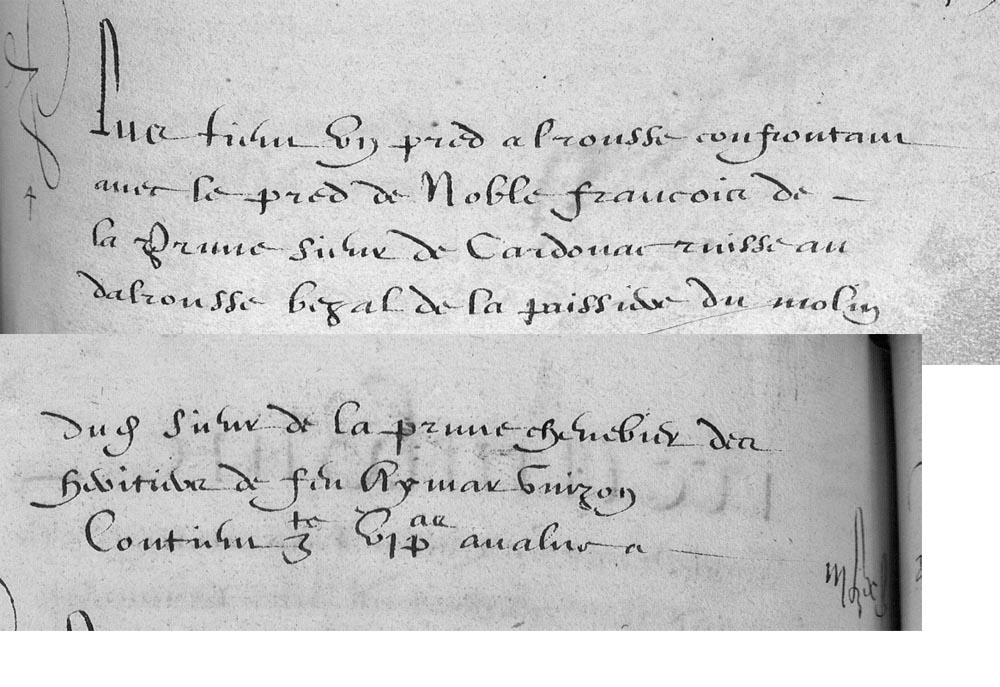 Plus tient ung pred alrousse confrontant
avec le pred de Noble francois de
la Prune sieur de Cardonac ruisseau
dalrousse bezal de la paissiere du molin
dud sieur de la prune chenebier des
heritiers de feu Aymar Guizon
Contient 3 te VI p es avalue a